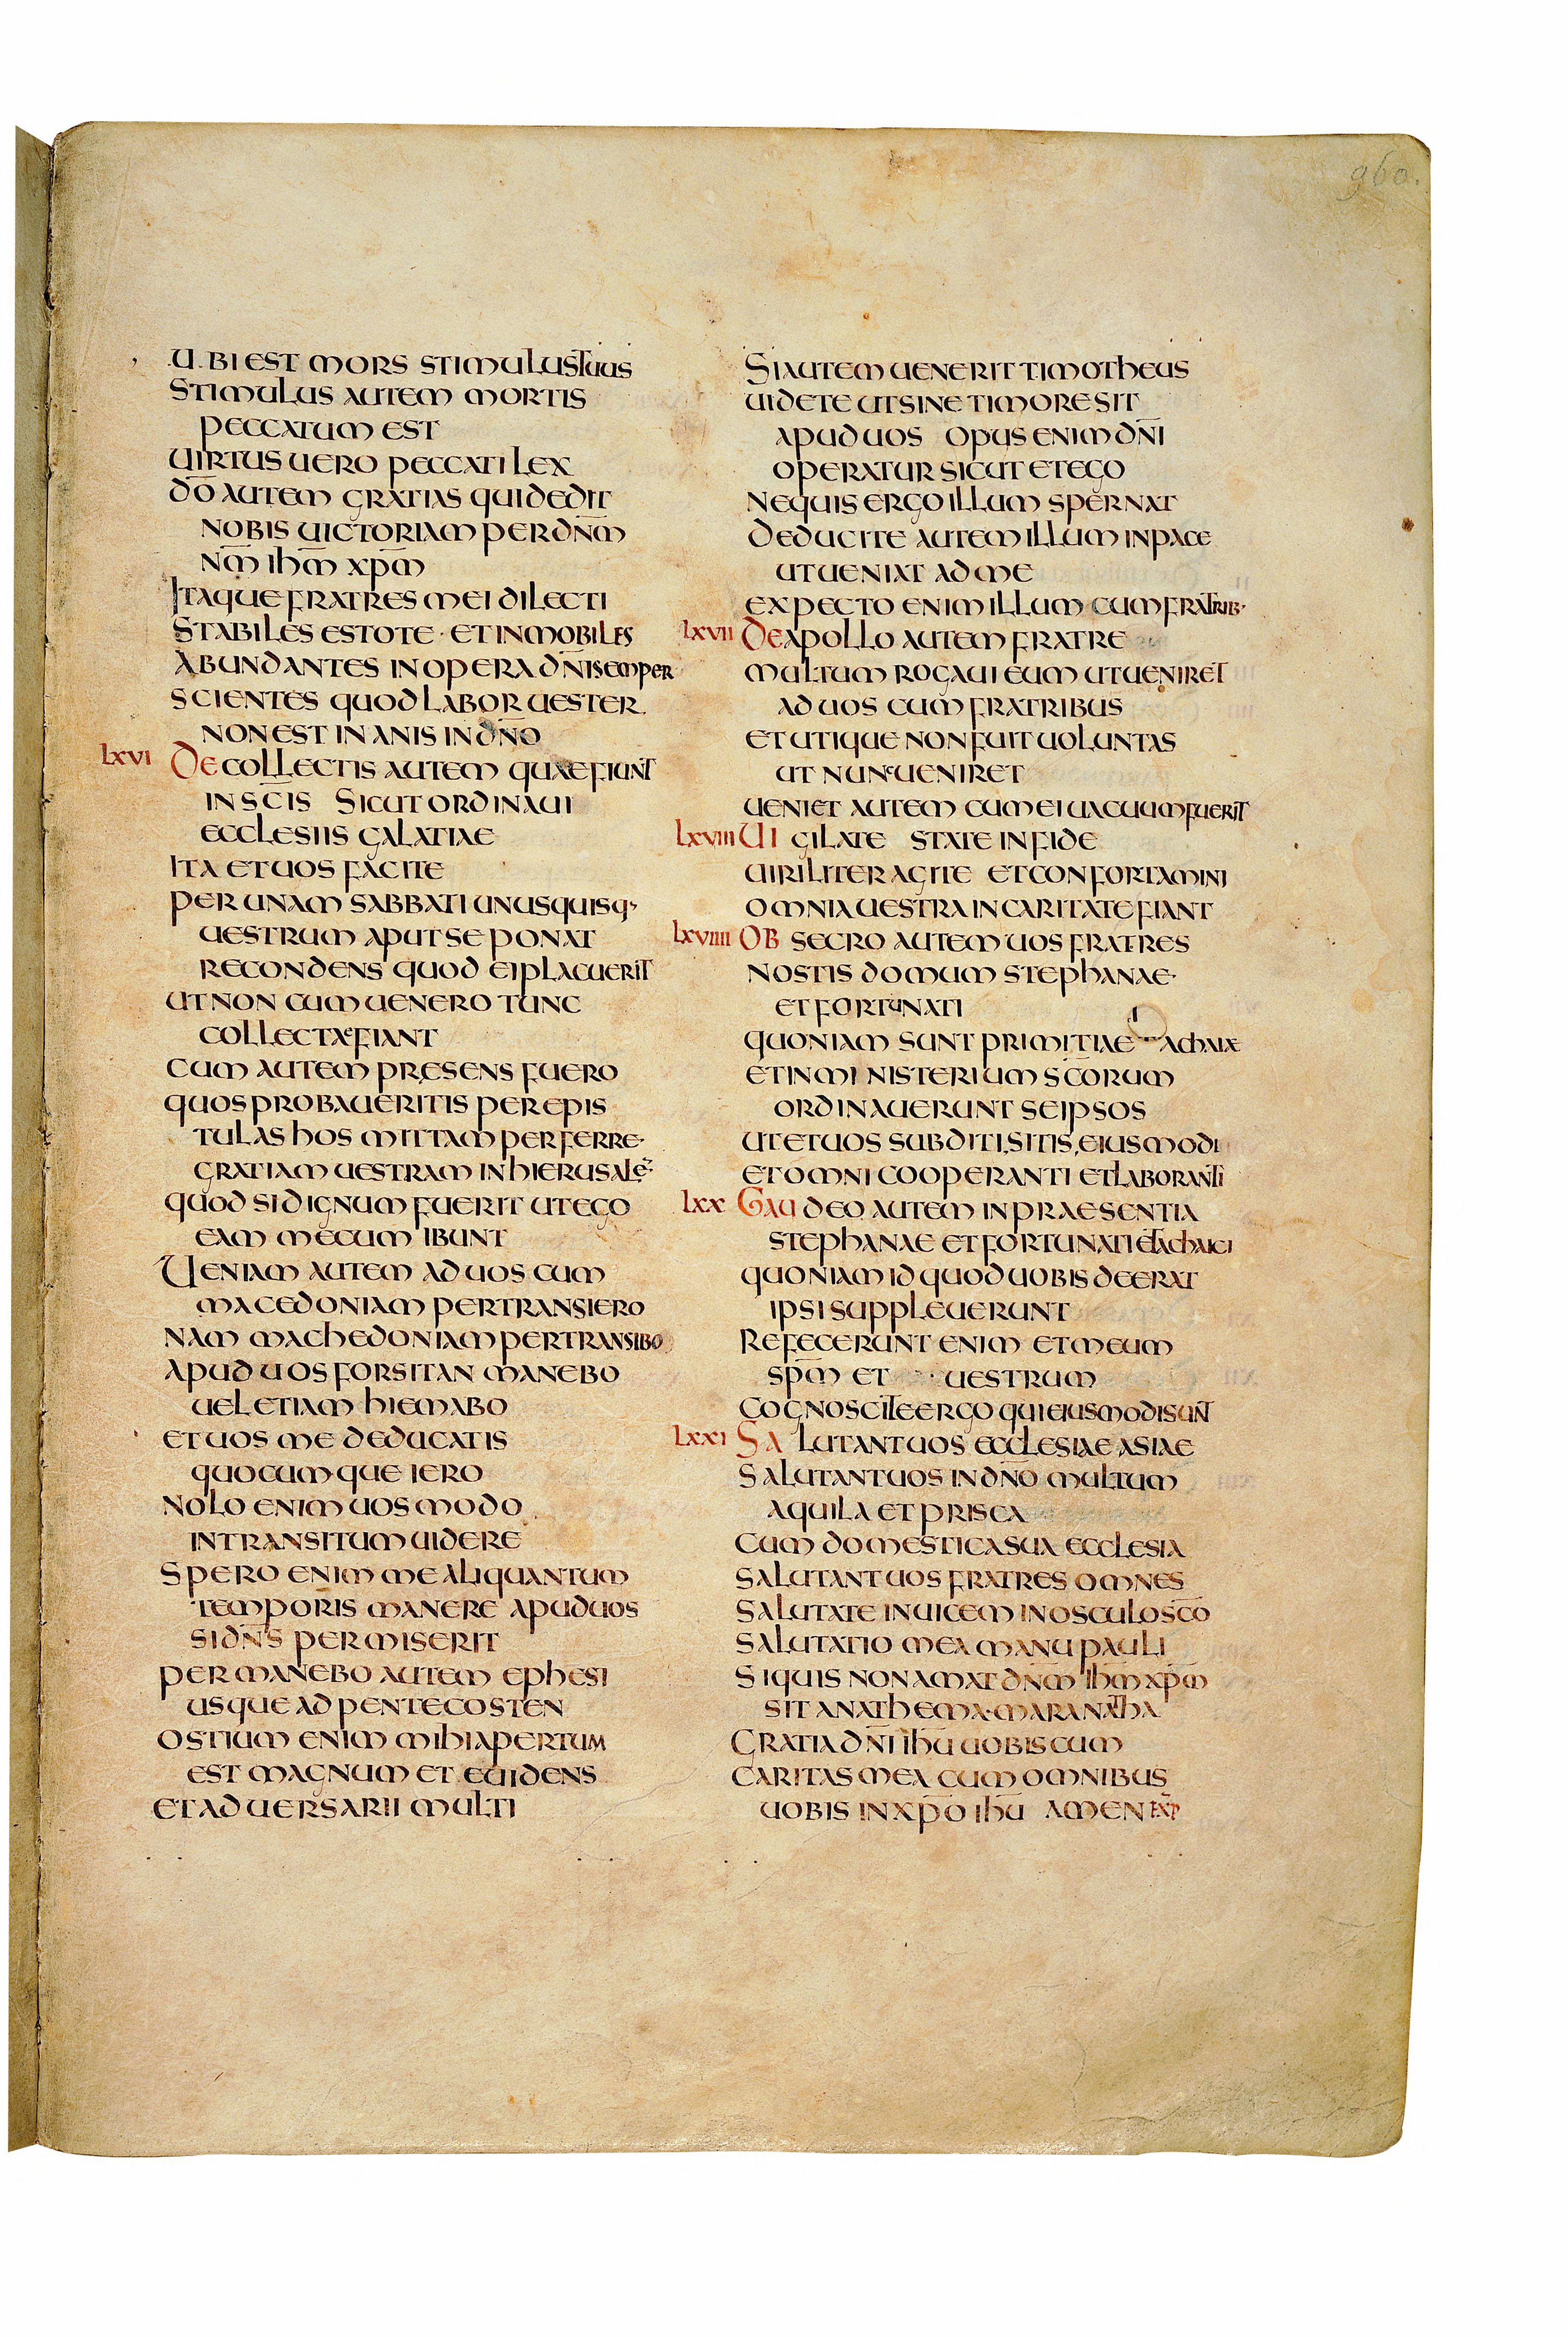 960.
UBI EST MORS STIMULUS TUUS
STIMULUS AUTEM MORTIS
PECCATUM EST
UIRTUS UERO PECCATI LEX
DŌ AUTEM GRATIAS QUI DEDIT
NOBIS UICTORIAM PER DN̄M
NM̄ IHM̄ XPM̄
ITAQUE FRATRES MEI DILECTI
STABILES ESTOTE · ET INMOBILES
ABUNDANTES IN OPERA DN̄I SEMPER
SCIENTES QUOD LABOR UESTER
NON EST INANIS IN DN̄O
LXVI DE COLLECTIS AUTEM QUAE FIUNT
IN SC̄IS SICUT ORDINAUI
ECCLESIIS GALATIAE
ITA ET UOS FACITE
PER UNAM SABBATI UNUSQUISQ·
UESTRUM APUT SE PONAT
RECONDENS QUOD EI PLACUERIT
UT NON CUM UENERO TUNC
COLLECTAE FIANT
CUM AUTEM PRESENS FUERO
QUOS PROBAUERITIS PER EPIS
TULAS HOS MITTAM PERFERRE·
GRATIAM UESTRAM IN HIERUSALĒ·
QUOD SI DIGNUM FUERIT UT EGO
EAM MECUM IBUNT
UENIAM AUTEM AD UOS CUM
MACEDONIAM PERTRANSIERO
NAM MACHEDONIAM PERTRANSIBO
APUD UOS FORSITAN MANEBO
UEL ETIAM HIEMABO
ET UOS ME DEDUCATIS
QUOCUMQUE IERO
NOLO ENIM UOS MODO
IN TRANSITUM UIDERE
SPERO ENIM ME ALIQUANTUM
TEMPORIS MANERE APUD UOS
SI DN̄S PERMISERIT
PERMANEBO AUTEM EPHESI
USQUE AD PENTECOSTEN
OSTIUM ENIM MIHI APERTUM
EST MAGNUM ET EUIDENS
ET ADUERSARII MULTI
SI AUTEM UENERIT TIMOTHEUS
UIDETE UT SINE TIMORE SIT
APUD UOS OPUS ENIM DN̄I
OPERATUR SICUT ET EGO
NE QUIS ERGO ILLUM SPERNAT
DEDUCITE AUTEM ILLUM IN PACE
UT UENIAT AD ME
EXPECTO ENIM ILLUM CUM FRATRIB·
LXVII DE APOLLO AUTEM FRATRE
MULTUM ROGAUI EUM UT UENIRET
AD UOS CUM FRATRIBUS
ET UTIQUE NON FUIT UOLUNTAS
UT NUNC UENIRET
UENIET AUTEM CUM EI UACUUM FUERIT
LXVIII UIGILATE STATE IN FIDE
UIRILITER AGITE ET CONFORTAMINI
OMNIA UESTRA IN CARITATE FIANT
LXVIIII OBSECRO AUTEM UOS FRATRES
NOSTIS DOMUM STEPHANAE·
ET FORTUNATI
QUONIAM SUNT PRIMITIAE ACHAIAE
ET IN MINISTERIUM SC̄ORUM
ORDINAUERUNT SEIPSOS
UT ET UOS SUBDITI SITIS EIUSMODI
ET OMNI COOPERANTI ET LABORANTI
LXX GAUDEO AUTEM IN PRAESENTIA
STEPHANAE ET FORTUNATI ET ACHAICI
QUONIAM ID QUOD UOBIS DEERAT
IPSI SUPPLEUERUNT
REFECERUNT ENIM ET MEUM
SPM̄ ET UESTRUM
COGNOSCITE ERGO QUI EIUSMODI SUNT
LXXI SALUTANT UOS ECCLESIAE ASIAE
SALUTANT UOS IN DN̄O MULTUM
AQUILA ET PRISCA
CUM DOMESTICA SUA ECCLESIA
SALUTANT UOS FRATRES OMNES
SALUTATE INUICEM IN OSCULO SC̄O
SALUTATIO MEA MANU PAULI
SI QUIS NON AMAT DN̄M IHM̄ XPM̄
SIT ANATHEMA·MARANATHA
GRATIA DN̄I IHŪ UOBISCUM
CARITAS MEA CUM OMNIBUS
UOBIS IN XPŌ IHŪ AMEN EXP